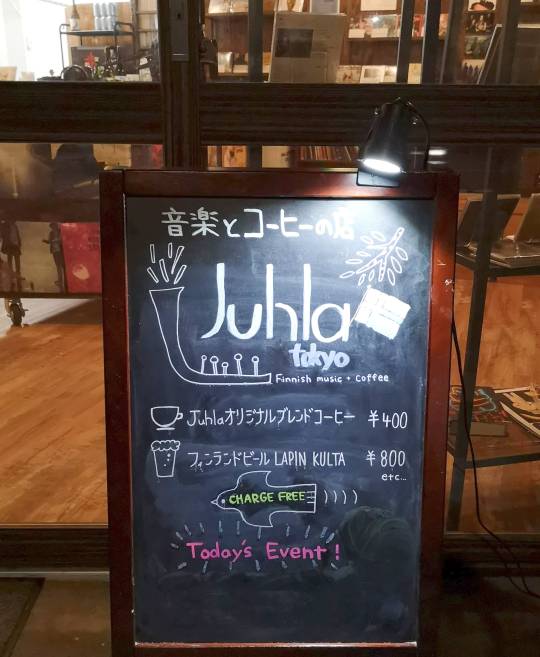 音楽とコーヒーの店
Juhla
tokyo
Finnish music + coffee
Juhlaオリジナルブレンドコーヒー ¥400
フィンランドビール LAPIN KULTA ¥800
etc...
CHARGE FREE
Today's Event!